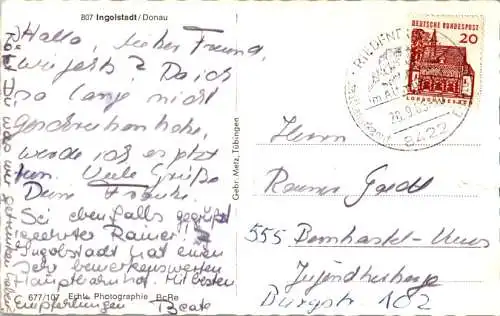 807 Ingolstadt/Donau
Hallo, lieber Freund,
wie geht's? Da ich
so lange nicht
geschrieben habe,
werde ich es jetzt
tun. Viele Grüße
Dein
Sei ebenfalls gegrüßt
geehrter Rainer!
Ingolstadt hat einen
sehr bemerkenswerten
Hauptbahnhof. Mit besten
Empfehlungen Beate
677/107 Echte Photographie BcRe
Gebr. Metz, Tübingen
DEUTSCHE BUNDESPOST
20
RIEDENBURG
8422
Herrn
Rainer
555 Bernkastel-Kues
Jugendherberge
Burgstr 102